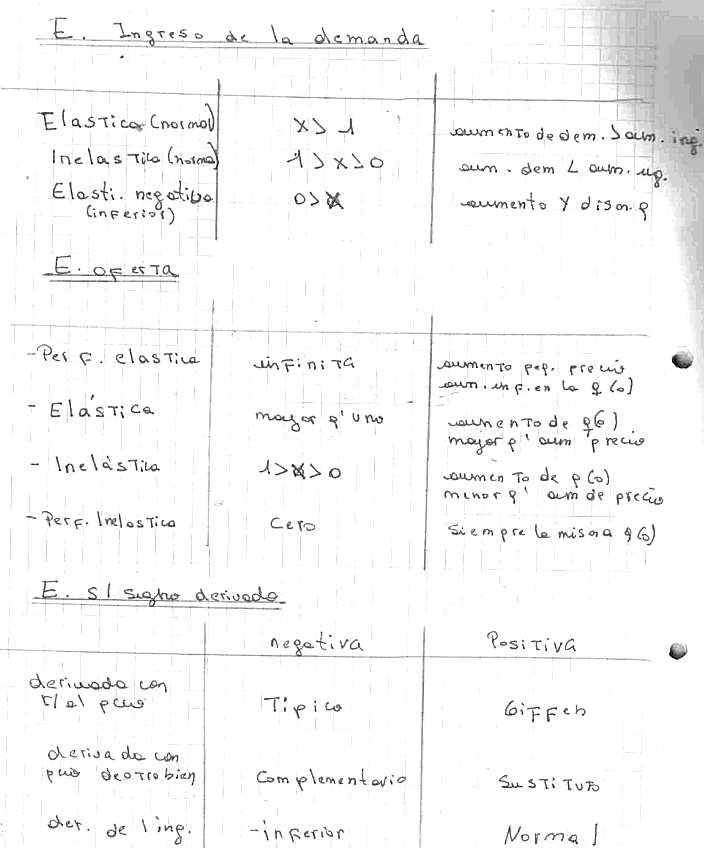 E. Ingreso de la demanda
Elastica (normal) x > 1 aumento de dem. > aum. ing.
Inelastica (normal) 1 > x > 0 aum. dem < aum. ing.
Elasti. negatiba 0 > x aumento Y dism. q
(inferior)
E. oferta
- Perf. elastica infinita aumento peq. precio
aum. inf. en la q (o)
- Elástica mayor q' uno aumento de q(o)
mayor q' aum precio
- Inelástica 1 > x > 0 aumento de q (o)
menor q' aum de precio
- Perf. Inelastica Cero siempre la misma q (o)
E. s/ signo derivada
negativa Positiva
derivada con
r/ al pcio Típico Giffen
derivada con
pcio de otro bien Complementario Sustituto
der. de l ing. - inferior Normal